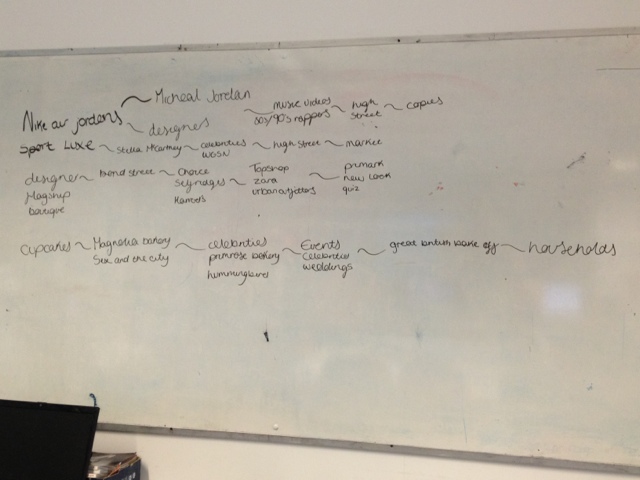 Micheal Jordan
Nike air jordans
designers
music videos
80s/90's rappers
high street
copies
Sport Luxe
Stella McCartney
celebrities
high street
market
designer
flagship
boutique
Bond street
Choice
Selfridges
Harrods
Topshop
Zara
urban outfitters
primark
new look
quiz
cupcakes
Magnolia bakery
Sex and the city
celebrities
primrose bakery
hummingbird
Events
celebrities
weddings
great british bake off
households